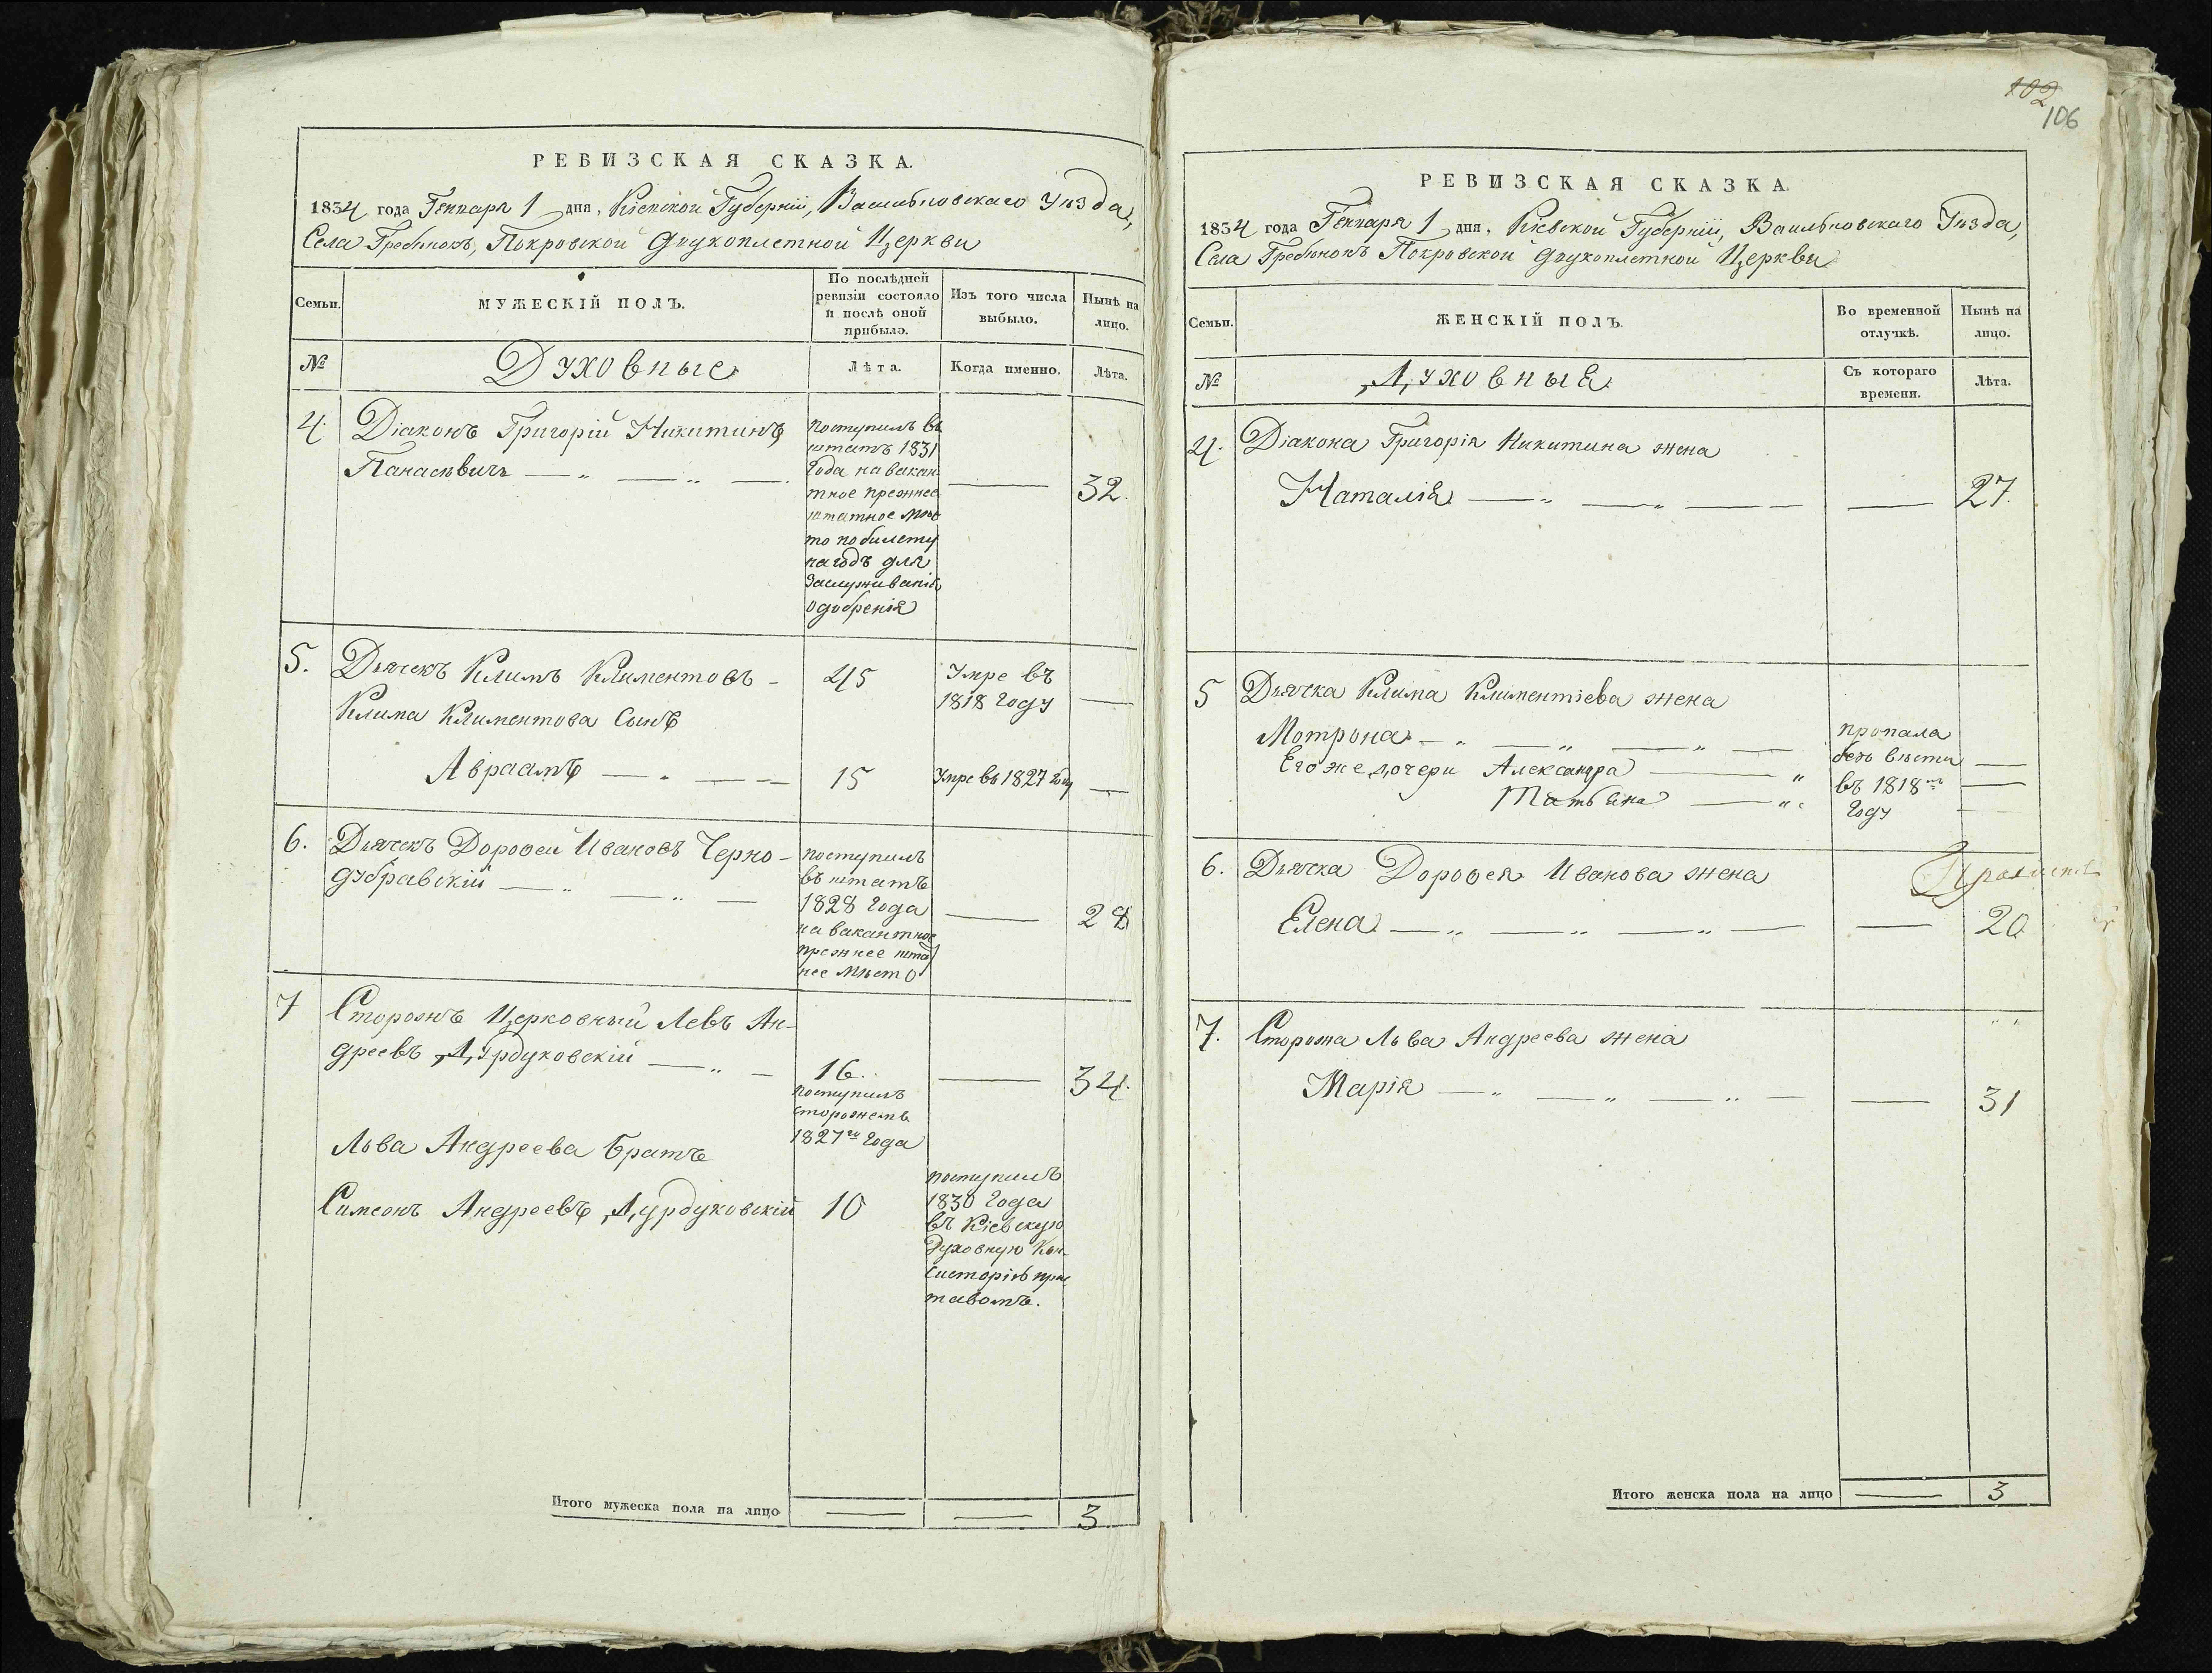 РЕВИЗСКАЯ СКАЗКА.
1834 года Генваря 1 дня, Кіевской Губерніи, Васильковскаго Уѣзда,
Села Гребѣнокъ, Покровской Двухоплетной Церкви
Семьи.
МУЖЕСКІЙ ПОЛЪ.
По послѣдней
ревизіи состояло
и послѣ оной
прибыло.
Изъ того числа
выбыло.
Нынѣ на
лицо.
№
Духовные
Лѣта.
Когда именно.
Лѣта.
4. Діаконъ Григорій Никитинъ
Панасѣвичъ
поступилъ въ
штатъ 1831
года на вакан
тное прежнее
штатное мѣс
то по билету
на годъ для
заслуживанія
одобренія
32.
5. Дьячекъ Климъ Климентовъ
45
Умре въ
1818 году
Клима Климентова Сынъ
Авраамъ
15
Умре въ 1827 году
6. Дьячекъ Дороѳей Ивановъ Черно-
дубравскій
поступилъ
въ штатъ
1828 года
на вакантное
прежнее штат
нее мѣсто
28
7 Сторожъ Церковный Левъ Ан-
дреевъ Дурдуковскій
16.
поступилъ
сторожемъ
1827го года
34.
Льва Андреева братъ
Симеонъ Андреевъ Дурдуковскій
10
поступилъ
1830 года
въ Кіевскую
Духовную Кон-
систорію прис
тавомъ.
Итого мужеска пола на лицо
3
102
106
РЕВИЗСКАЯ СКАЗКА.
1834 года Генваря 1 дня, Кіевской Губерніи, Васильковскаго Уѣзда,
Села Гребѣнокъ Покровской Двухоплетной Церкви
Семьи.
ЖЕНСКІЙ ПОЛЪ.
Во временной
отлучкѣ.
Нынѣ на
лицо.
№
Духовныя
Съ котораго
времени.
Лѣта.
4. Діакона Григорія Никитина жена
Наталія
27.
5 Дьячка Клима Климентіева жена
Мотрона
Его же дочери Александра
Татьяна
пропала
безъ вѣсти
въ 1818мъ
году
6. Дьячка Дороѳея Иванова жена
Елена
20
7. Сторожа Льва Андреева жена
Марія
31
Итого женска пола на лицо
3